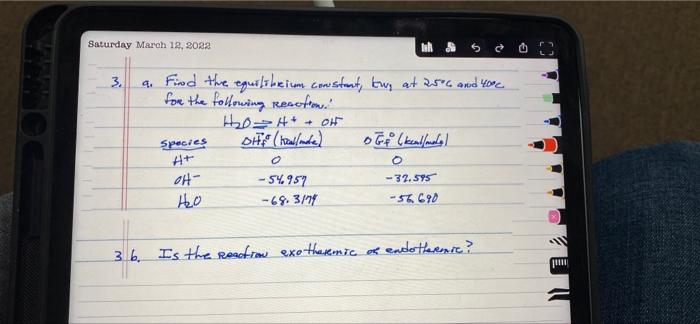 Saturday March 12, 2022
3. a. Find the equilibrium constant, kw, at 25°C and 40°C
for the following reaction:
H2O ⇌ H+ + OH-
species ΔH̄f° (kcal/mole) ΔḠf° (kcal/mole)
H+ 0 0
OH- -54.957 -37.595
H2O -68.3174 -56.690
3 b. Is the reaction exothermic or endothermic?